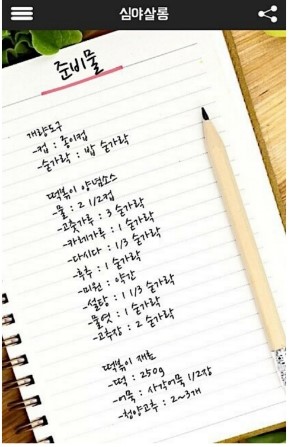 심야살롱
준비물
계량도구
-컵 : 종이컵
-숟가락 : 밥 숟가락
떡볶이 양념소스
-물 : 2 1/2컵
-고춧가루 : 3 숟가락
-카레가루 : 1 숟가락
-다시다 : 1/3 숟가락
-후추 : 1 숟가락
-미원 : 약간
-설탕 : 1 1/3 숟가락
-물엿 : 1 숟가락
-고추장 : 2 숟가락
떡볶이 재료
-떡 : 250g
-어묵 : 사각어묵 1/2장
-청양고추 : 2~3개